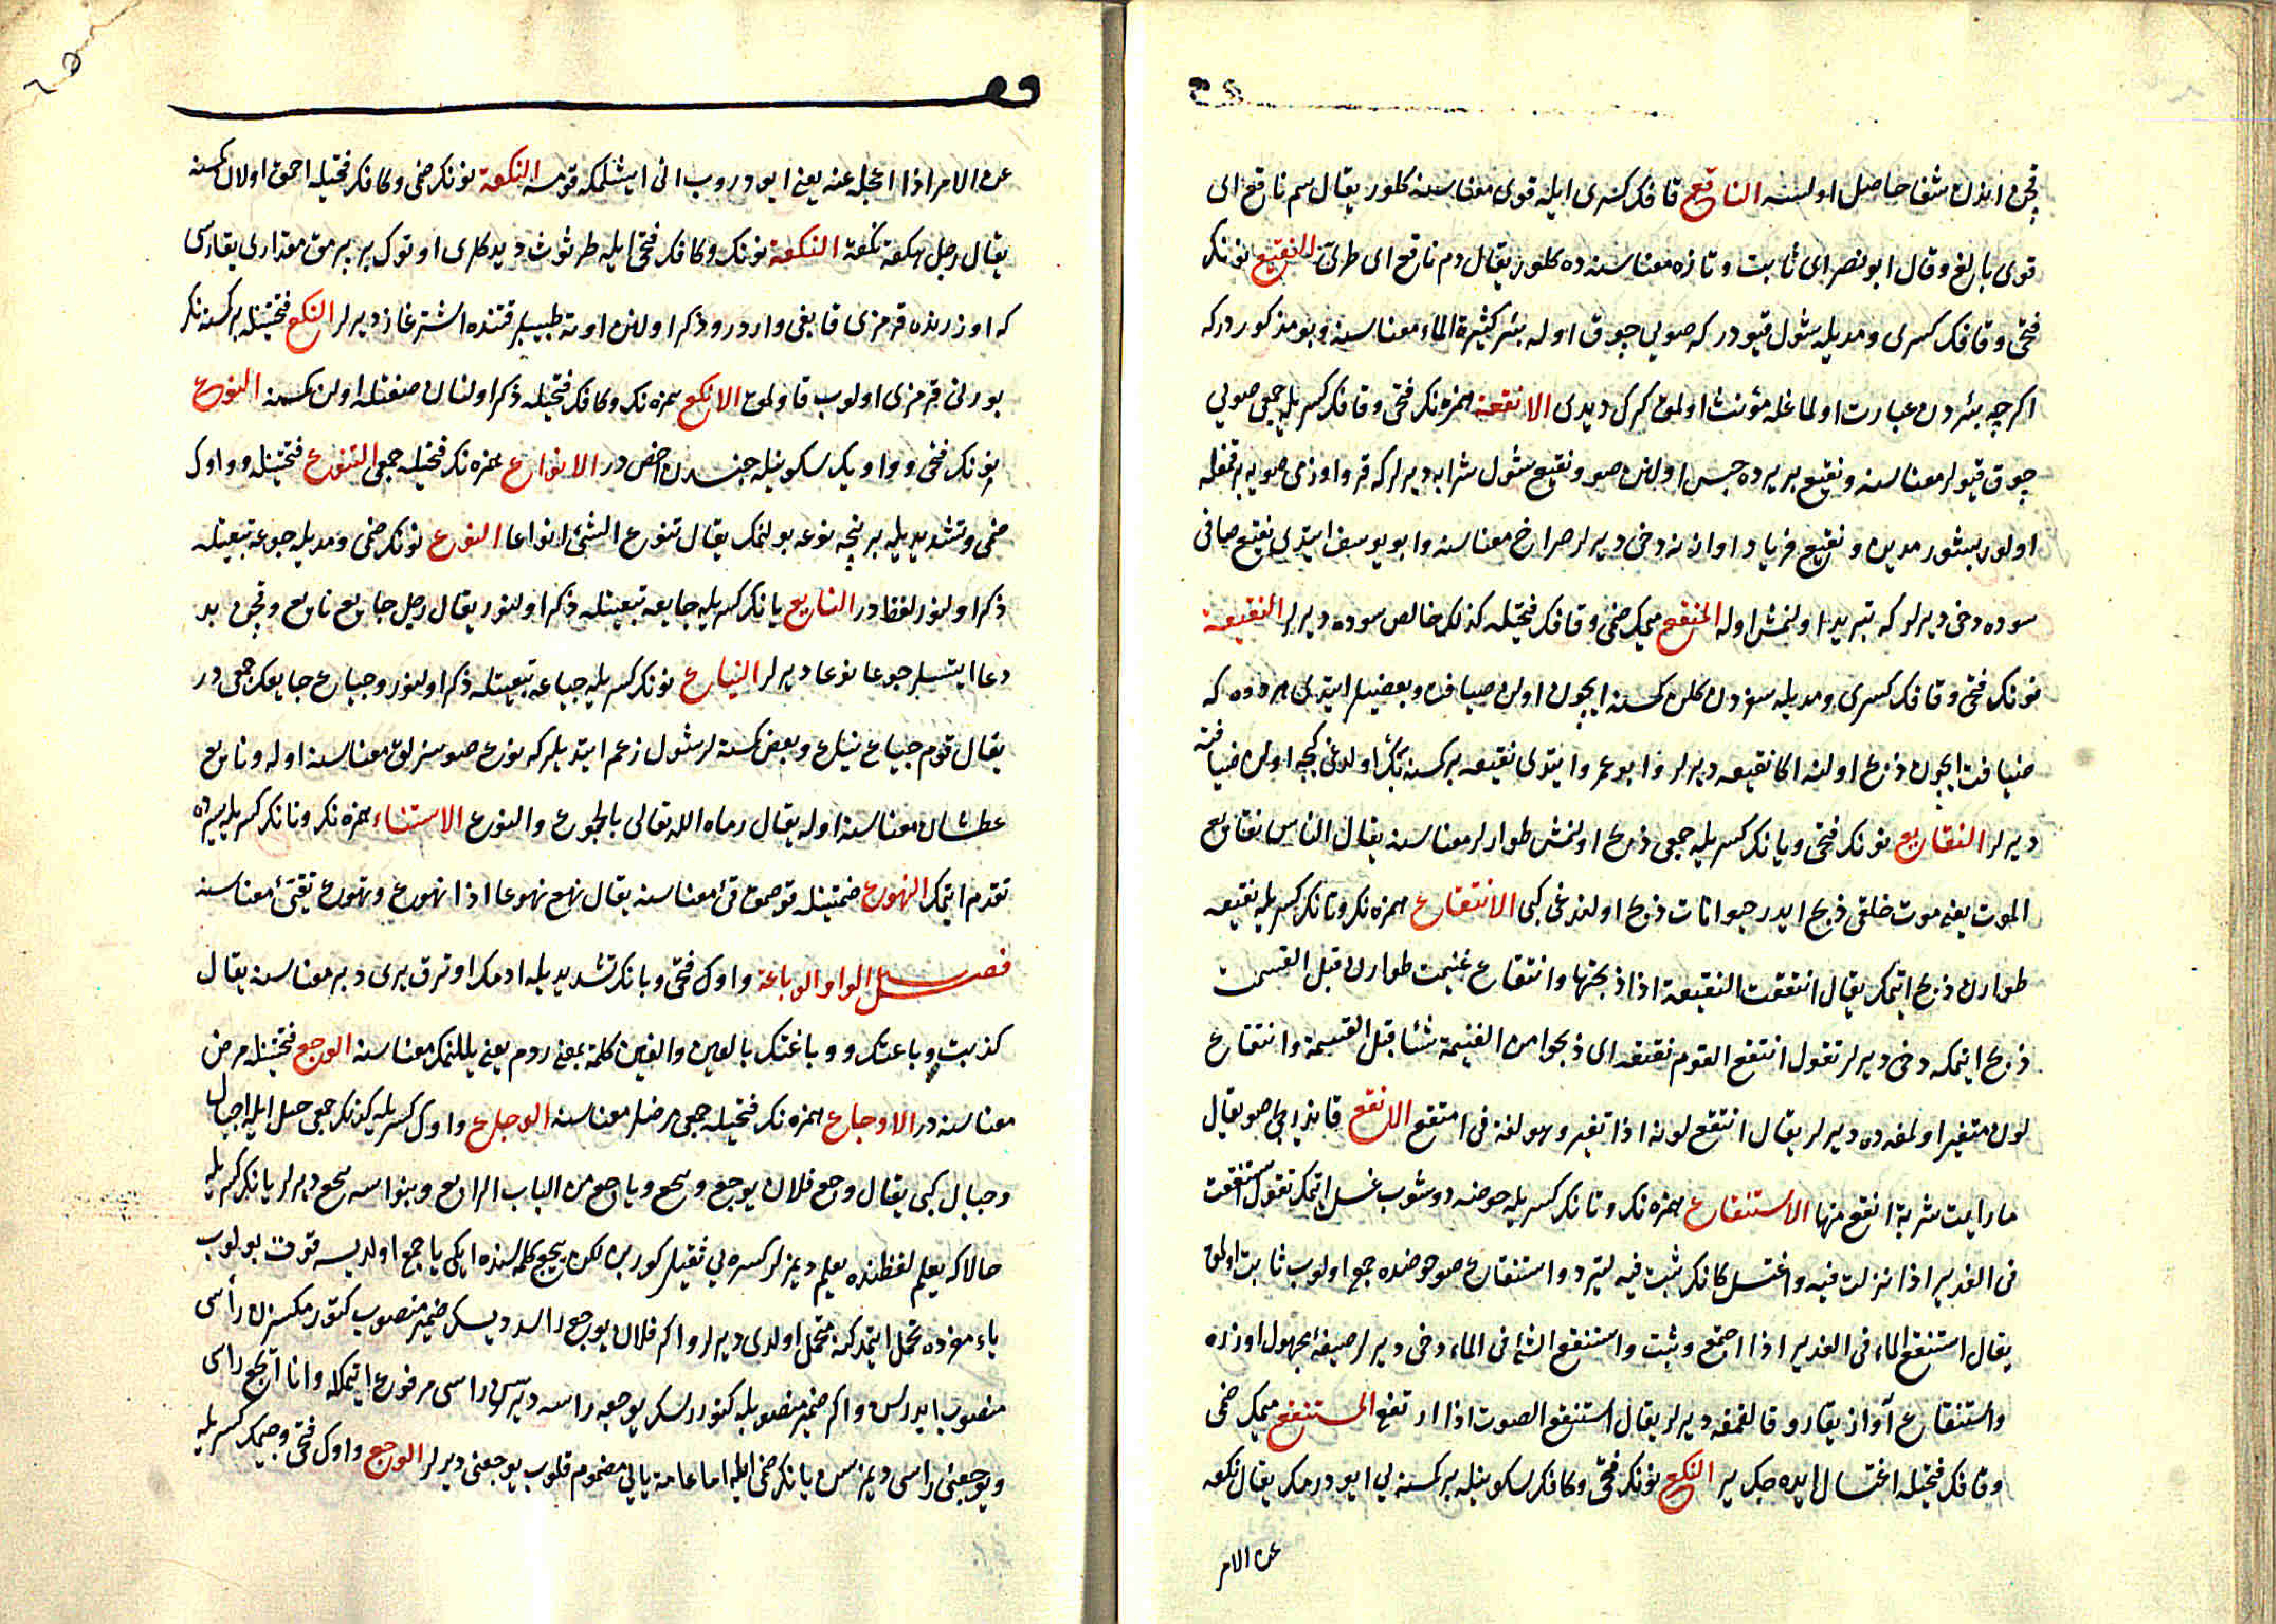 قچن اندن شفا حاصل اولسه الناقع قافك كسرى ايله قوى معناسنه كلور يقال سم ناقع اى
قوى بالغ وقال ابو نصر اى ثابت وتازه معناسنه ده كلور يقال دم ناقع اى طرى النقيع نونك
فتحى وقافك كسرى ومديله شول قيودر كه صويى چوق اوله بئر كثيرة الماء معناسنه وبو مذكوردركه
اكرچه بئردن عبارت اولماغله مؤنث اولمق كرك ديدى الانقعة همزه نك فتحى وقافك كسريله جمعى صويى
چوق قيولر معناسنه ونقيع بر يرده حبس اولنن صو ونقيع شول شرابه ديرلركه قرو اوزمى صويه براقمغله
اولور بيشورمدين ونقيع فرياد واوازنه دخى ديرلر صراخ معناسنه وابو يوسف ايتدى نقيع صافى
سوده دخى ديرلر كه تبريد اولنمش اوله المنقع ميمك ضمى وقافك فتحيله كذلك خالص سوده ديرلر النقيعة
نونك فتحى وقافك كسرى ومديله سفردن كلن كمسنه ايچون اولن ضيافت وبعضيلر ايتدى هر دوه كه
ضيافت ايچون ذبح اولنه اكا نقيعه ديرلر وابو عمرو ايتدى نقيعه بر كمسنه بكر اولدغى كيجه اولن ضيافته
ديرلر النقايع نونك فتحى ويانك كسريله جمعى ذبح اولنمش طوارلر معناسنه يقال الناس نقايع
الموت يعنى موت خلقى ذبح ايدر حيوانات ذبح اولندغى كبى الانتقاع همزه نك وتانك كسريله نقيعه
طوارن ذبح اتمك يقال انتقعت النقيعة اذا ذبحتها وانتقاع غنيمت طوارن قبل القسمت
ذبح ايتمكه دخى ديرلر تقول انتقع القوم نقيعة اى ذبحوا من الغنيمة شئا قبل القسمة وانتقاع
لون متغير اولمغه ده ديرلر يقال انتقع لونه اذا تغير وهو لغة فى امتقع الانقع قانديرجى صو يقال
ما رايت شربة انقع منها الاستنقاع همزه نك وتانك كسريله حوضه دوشوب غسل اتمك تقول استنقعت
فى الغدير اذا نزلت فيه واغتسل كانك ثبت فيه لتبرد واستنقاع صو حوضده جمع اولوب ثابت اولمق
يقال استنقع الماء فى الغدير اذا اجتمع وثبت واستنقع الشئ فى الماء دخى ديرلر صيغه مجهول اوزره
واستنقاع آواز يقارو قالقمغه ديرلر يقال استنقع الصوت اذا ارتفع المستنقع ميمك ضمى
وقافك فتحيله اغتسال ايده جك ير النكع نونك فتحى وكافك سكونيله بر كمسنه يى ايودرمك يقال نكعه
عن الامر
عن الامر اذا اعجله عنه يعنى ايودروب انى ايشلمكه قومسه النكعة نونك ضمى وكافك فتحيله احمق اولان كمسنه
يقال رجل هكعة نكعة النكعة نونك وكافك فتحى ايله طرثوث ديدكلرى اوتوك بر برمق مقدارى يقاروسى
كه اوزرنده قرمزى قابغى واردر وذكر اولنن اوته طبيبلر قتنده اشترغاز ديرلر النكع فتحتينله بر كمسنه نك
بورنى قرمزى اولوب قاولمق الانكع همزه نك وكافك فتحيله ذكر اولنان صفتله اولن كمسنه النوع
نونك فتحى وواويك سكونيله جنسدن اخص در الانواع همزه نك فتحيله جمعى التنوع فتحتينله وواوك
ضمى وتشديديله بر نيچه نوعه بولنمك يقال تنوع الشئ انواعا النوع نونك ضمى ومديله جوعه تبعيتله
ذكر اولنور لفظدر النايع يانك كسريله جايعه تبعيتله ذكر اولنور يقال رجل جايع نايع وقچن بد
دعا ايتسلر جوعا نوعا ديرلر النياع نونك كسريله جياعه تبعيتله ذكر اولنور وجياع جايعك جمعى در
يقال قوم جياع نياع وبعض كمسنه لر شول زعم ايتديلر كه نوع صوسزلق معناسنه اوله ونايع
عطشان معناسنه اوله يقال رماه الله تعالى بالجوع والنوع الاستناء همزه نك وتانك كسريله سيرده
تقدم ايتمك النهوع ضمتينله قوصمق قئ معناسنه يقال نهع نهوعا اذا تهوع وتهوع تقيئ معناسنه
فصل الواو الوباعة واوك فتحى وبانك تشديديله ادمك اوترق يرى دبر معناسنه يقال
كذبت وباعتك ووباغتك بالعين والغين كلمة بمعنى ردم يعنى يللنمك معناسنه الوجع فتحتينله مرض
معناسنه در الاوجاع همزه نك فتحيله جمعى مرضلر معناسنه الوجاع واوك كسريله كذلك جمعى جبل ايله اجبال
وجبال كبى يقال وجع فلان يوجع وييجع وياجع من الباب الرابع وبنو اسد ييجع ديرلر يانك كسريله
حالا كه يعلم لفظنده يعلم ديمزلر كسره يى ثقيل كوردن لكن ييجع كلمه سنده ايكى ياجمع اولديسه قوت بولوب
ياء مفرده تحمل ايتمدكنه متحمل اولدى ديرلر واكر فلان يوجع راسه ديسك ضمير منصوب كتورمكسزن رأسى
منصوب ايدرسن واكر ضمير منصوبله كتوررسك يوجعه راسه ديرسن راسى مرفوع ايتمكله وانا آيجع راسى
ويوجعنى راسى ديمزسن يانك ضمى ايله اما عامه يايى مضموم قلوب يوجعنى ديرلر الوجع واوك فتحى وجيمك كسريله